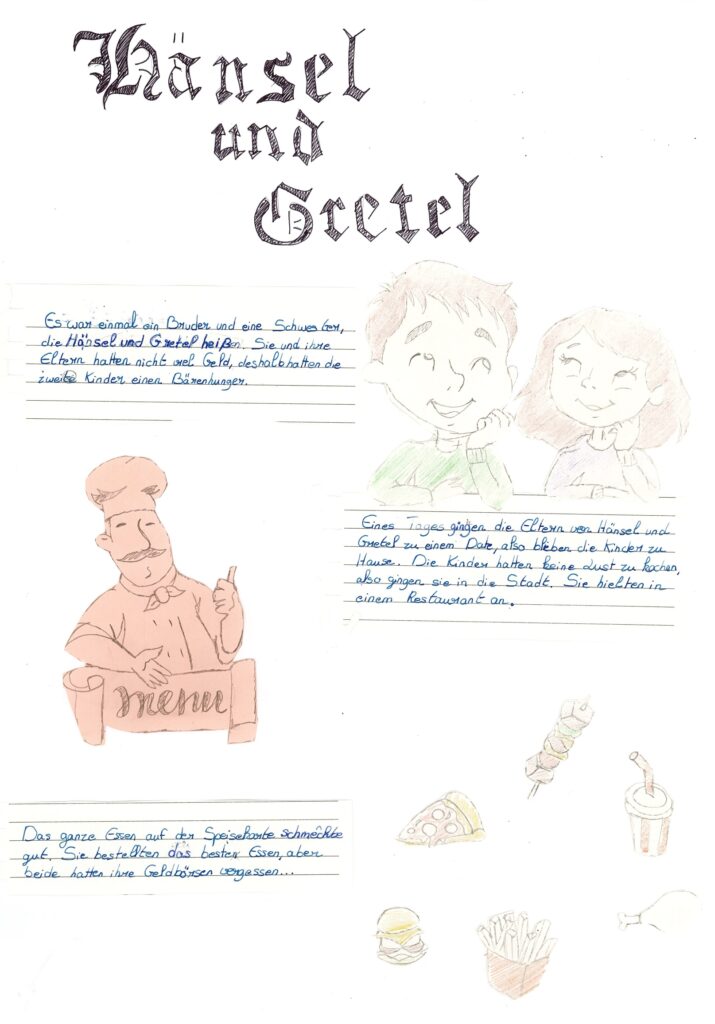 Hänsel
und
Gretel
Es war einmal ein Bruder und eine Schwester,
die Hänsel und Gretel heißen. Sie und ihre
Eltern hatten nicht viel Geld, deshalb hatten die
zweite Kinder einen Bärenhunger.
Eines Tages gingen die Eltern von Hänsel und
Gretel zu einem Date, also blieben die Kinder zu
Hause. Die Kinder hatten keine Lust zu kochen,
also gingen sie in die Stadt. Sie hielten in
einem Restaurant an.
menu
Das ganze Essen auf der Speisekarte schmeckte
gut. Sie bestellten das besten Essen, aber
beide hatten ihre Geldbörsen vergassen...